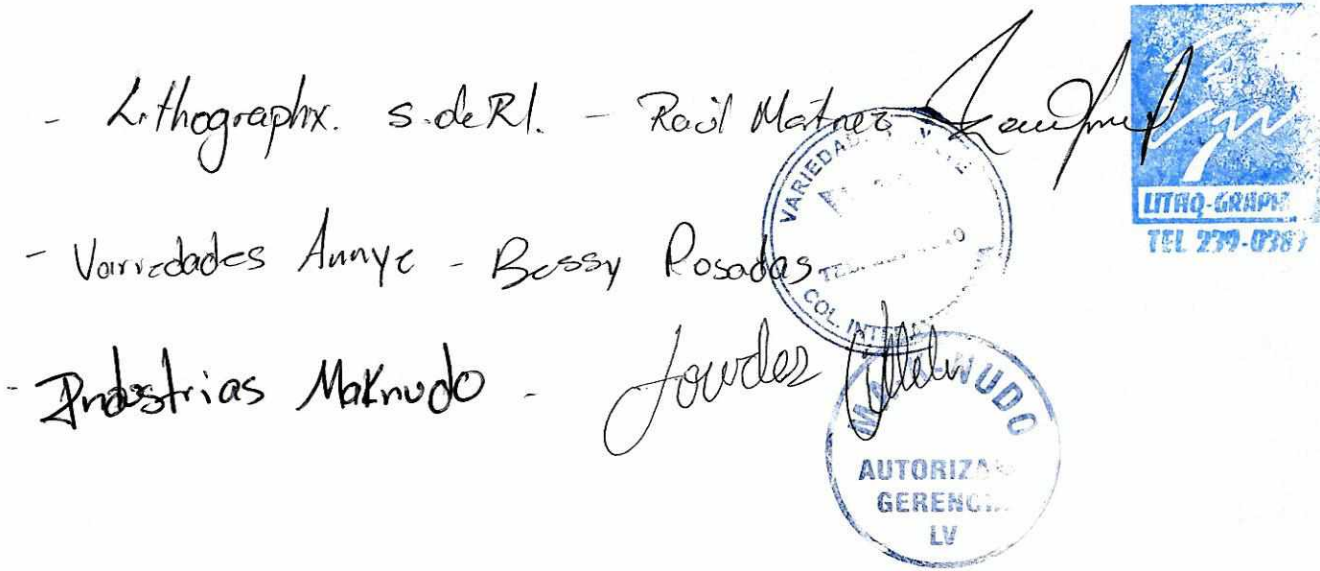 - Lithographx. S. de Rl. - Raúl Martnez
LITHO-GRAPH
TEL 239-0387
- Variedades Annye - Bessy Posadas
VARIEDADES
COL.
- Industrias Maknudo - Lourdes
MAKNUDO
AUTORIZA
GERENCIA
LV